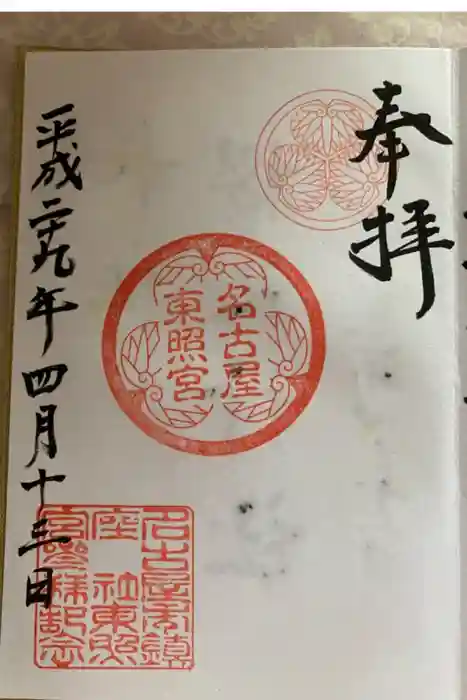 奉拝
名古屋
東照宮
平成二十九年四月十三日
名古屋市鎮
座 社東照
宮參拜記念